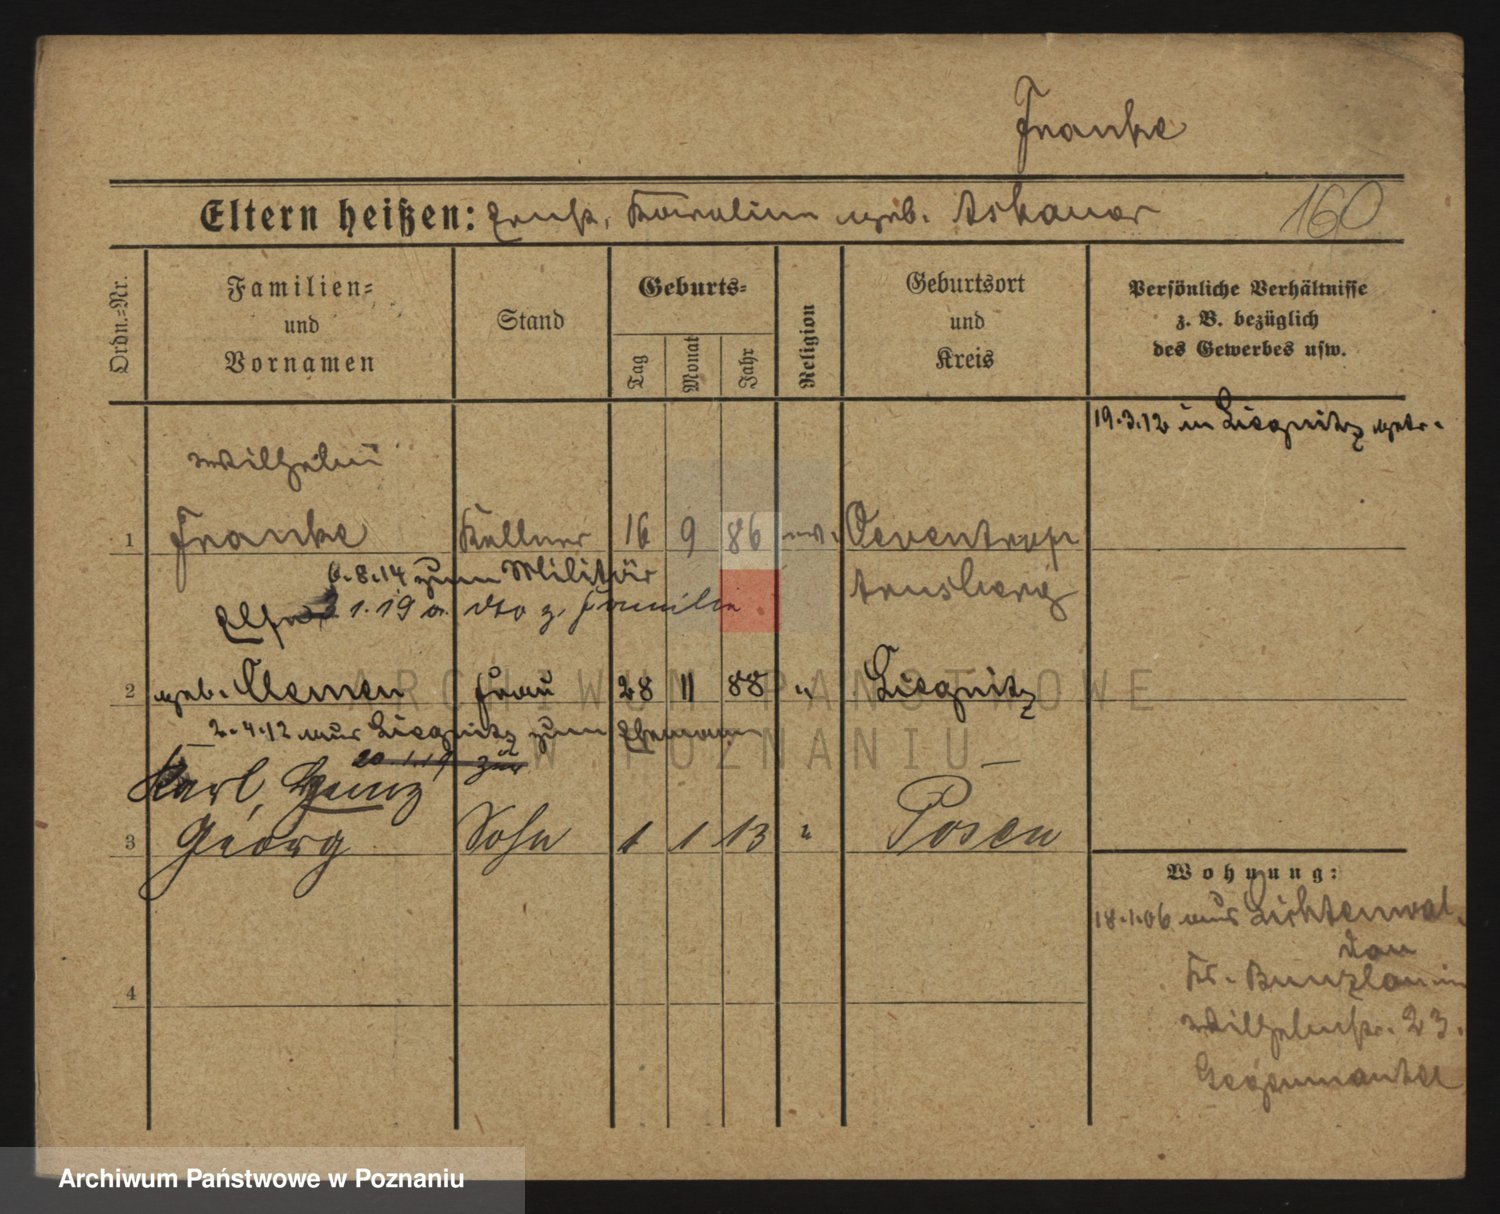 Franke
Eltern heißen: Ernst, Karoline geb. Askauer 160
Ordn.=Nr.
Familien=
und
Vornamen
Stand
Geburts=
Tag
Monat
Jahr
Religion
Geburtsort
und
Kreis
Persönliche Verhältnisse
z. B. bezüglich
des Gewerbes usw.
19.3.12 in Liegnitz getr.
Wilhelm
1 Franke Kellner 16 9 86 ev. Oeventrop
6.8.14 zum Militär Arnsberg
1.19 v. dto z. Familie
2 geb. Clemen Frau 28 11 88 " Liegnitz
2.4.12 aus Liegnitz zum Ehemann
20 1.19 zur
Karl, Heinz
3 Georg Sohn 1 1 13 " Posen
4
Wohnung:
18.1.06 aus Lichtenwal-
dau
Kr. Bunzlau in
Wilhelmstr. 23.
ARCHIWUM PAŃSTWOWE
W POZNANIU
Archiwum Państwowe w Poznaniu